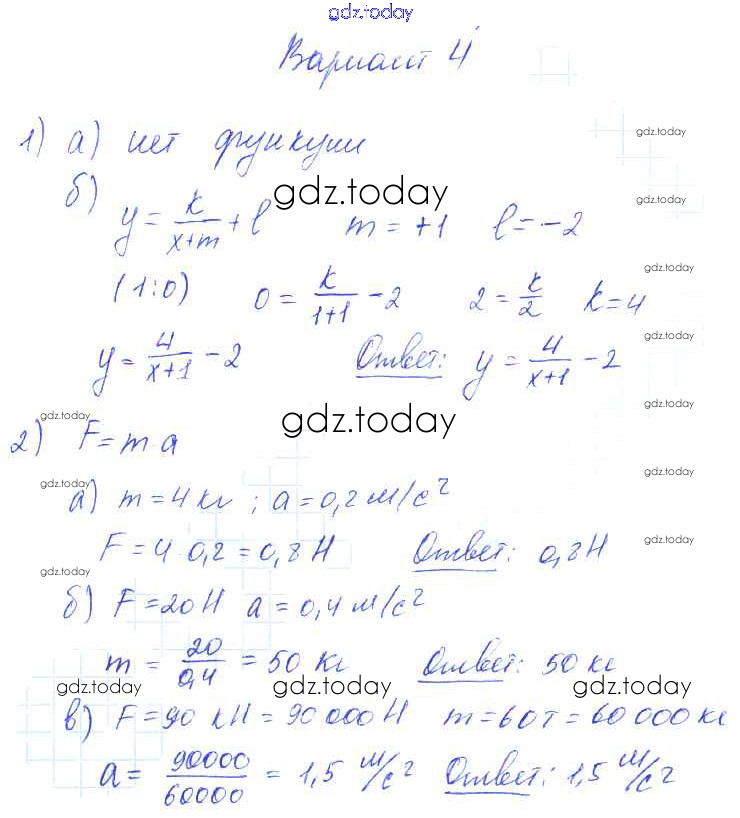 gdz.today
Вариант 4
gdz.today
1) а) нет функции
gdz.today
б) y = k/(x+m) + l   m = +1   l = -2
gdz.today
gdz.today
(1:0)   0 = k/(1+1) - 2   2 = k/2   k = 4
gdz.today
y = 4/(x+1) - 2   Ответ: y = 4/(x+1) - 2
gdz.today
gdz.today
gdz.today
2) F = m a
gdz.today
gdz.today
а) m = 4 кг ; a = 0,2 м/с²
F = 4 0,2 = 0,8 Н   Ответ: 0,8 Н
gdz.today
gdz.today
б) F = 20 Н   a = 0,4 м/с²
m = 20/0,4 = 50 кг   Ответ: 50 кг
gdz.today gdz.today gdz.today
в) F = 90 кН = 90 000 Н   m = 60 т = 60 000 кг
a = 90000/60000 = 1,5 м/с²   Ответ: 1,5 м/с²